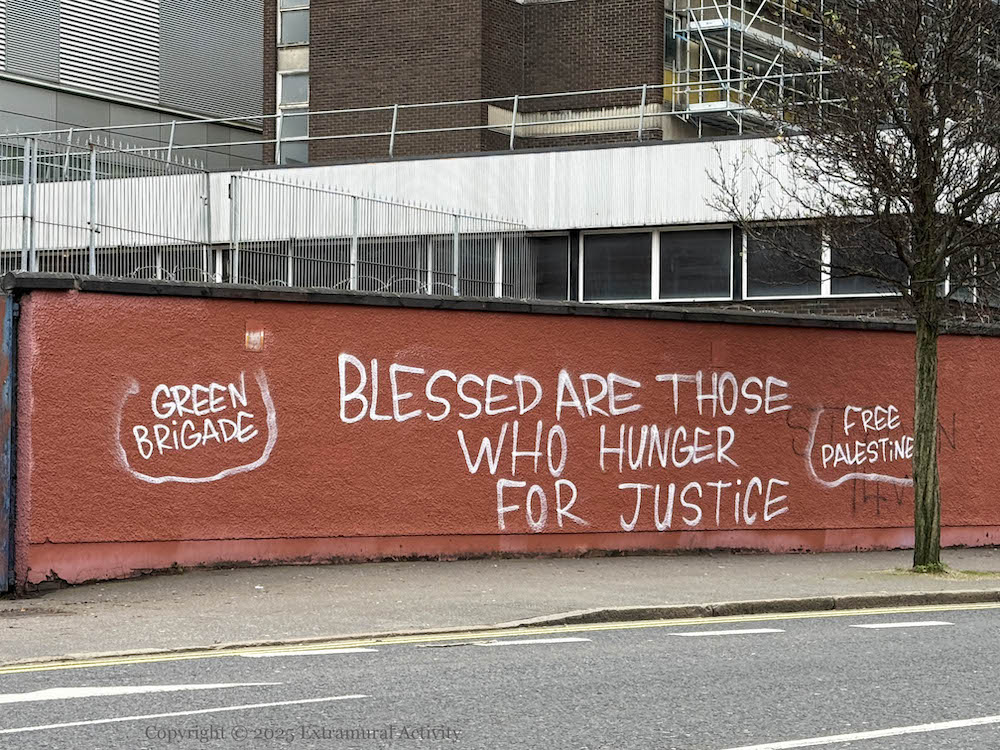 GREEN
BRiGADE
BLESSED ARE THOSE
WHO HUNGER
FOR JUSTiCE
FREE
PALESTiNE
Copyright © 2025 Extramural Activity